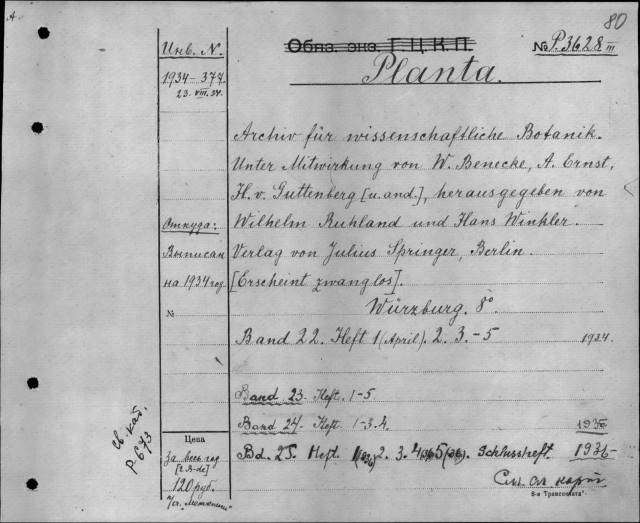 80
Инв. N.
Обяз. экз. Г.Ц.К.П.
№ P.3628 III
1934-374
23. VIII. 34.
Planta.
Archiv für wissenschaftliche Botanik.
Unter Mitwirkung von W. Benecke, A. Ernst,
H. v. Guttenberg [u. and.], herausgegeben von
Откуда:
Wilhelm Ruhland und Hans Winkler.
Выписан
Verlag von Julius Springer, Berlin.
на 1934 год
[Erscheint zwanglos].
№
Würzburg. 8°
Band 22. Heft 1 (April). 2. 3. - 5
1934.
Band 23. Heft. 1-5.
Band 24. Heft 1-3. 4.
Bd. 25. Heft. 2. 3. 4 5 (36). Schlussheft. 1936-
См. сл. карт
св. кат.
P. 673
Цена
За весь год
[2 B-de]
120 руб.